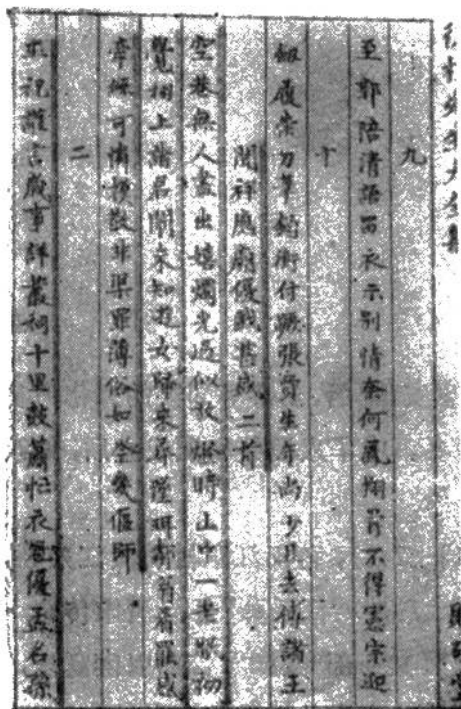 後村先生大全集
九
至郭陪清語留衣示別情奈何鳳翔首不得憲宗迎
十
劔履崇刀筆鈞衡付蹶張賈生年尚少且去傅諸王
聞祥應廟優戲甚盛二首
空巷無人盡出嬉燭光過似放燈時山中一老眠初
覺棚上諸君鬧未知遊女歸來尋墜珥鄰翁看罷感
牽絲可憐朴散非渠罪薄俗如今幾偃師
二
巫祝讙言歲事詳叢祠十里鼓簫忙衣冠優孟名孫